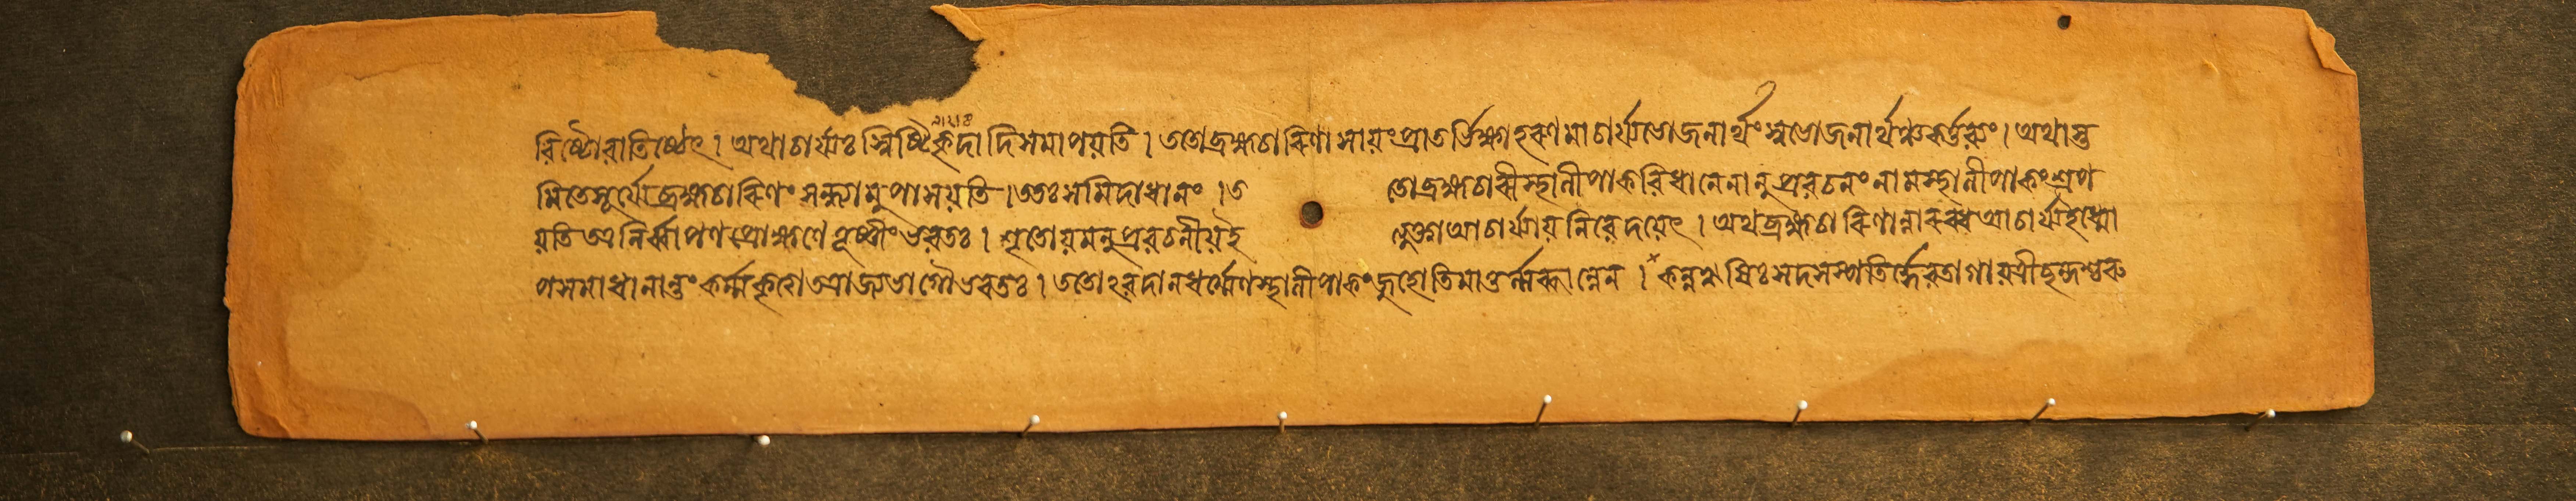 বিষ্টোবাতিষ্ঠেৎ । অথাচার্য্যঃ স্বিষ্টিকৃদাদিসমাপয়তি । ততোব্রহ্মচারিণাসায়ংপ্রাতর্ভিক্ষাহরণমাচার্য্যভোজনার্থংস্বভোজনার্থঞ্চকর্ত্তব্যং । অথাস্ত
মিতেসূর্য্যেব্রহ্মচারিণংসন্ধ্যামুপাসয়তি । ততঃসমিদাধানং । ত তোব্রহ্মচারীস্থালীপাকবিধানেনানুপ্রবচনংনামস্থালীপাকংশ্রপ
য়তি অত্রনির্ব্বাপণপ্রোক্ষণেতূষ্ণীংভবতঃ । শৃতোয়মনুপ্রবচনীয়ই ত্যুক্ত্বাআচার্য্যায়নিবেদয়েৎ । অথব্রহ্মচারিণান্বারব্ধআচার্য্যইধ্মো
পসমাধানান্তংকর্ম্মকৃত্বাআজ্যভাগৌভবতঃ । ততোঽবদানধর্ম্মেণস্থালীপাকংজুহোতি । ঋষিঃসদসস্পতির্দ্দেবতাগায়ত্রীছন্দশ্চরু